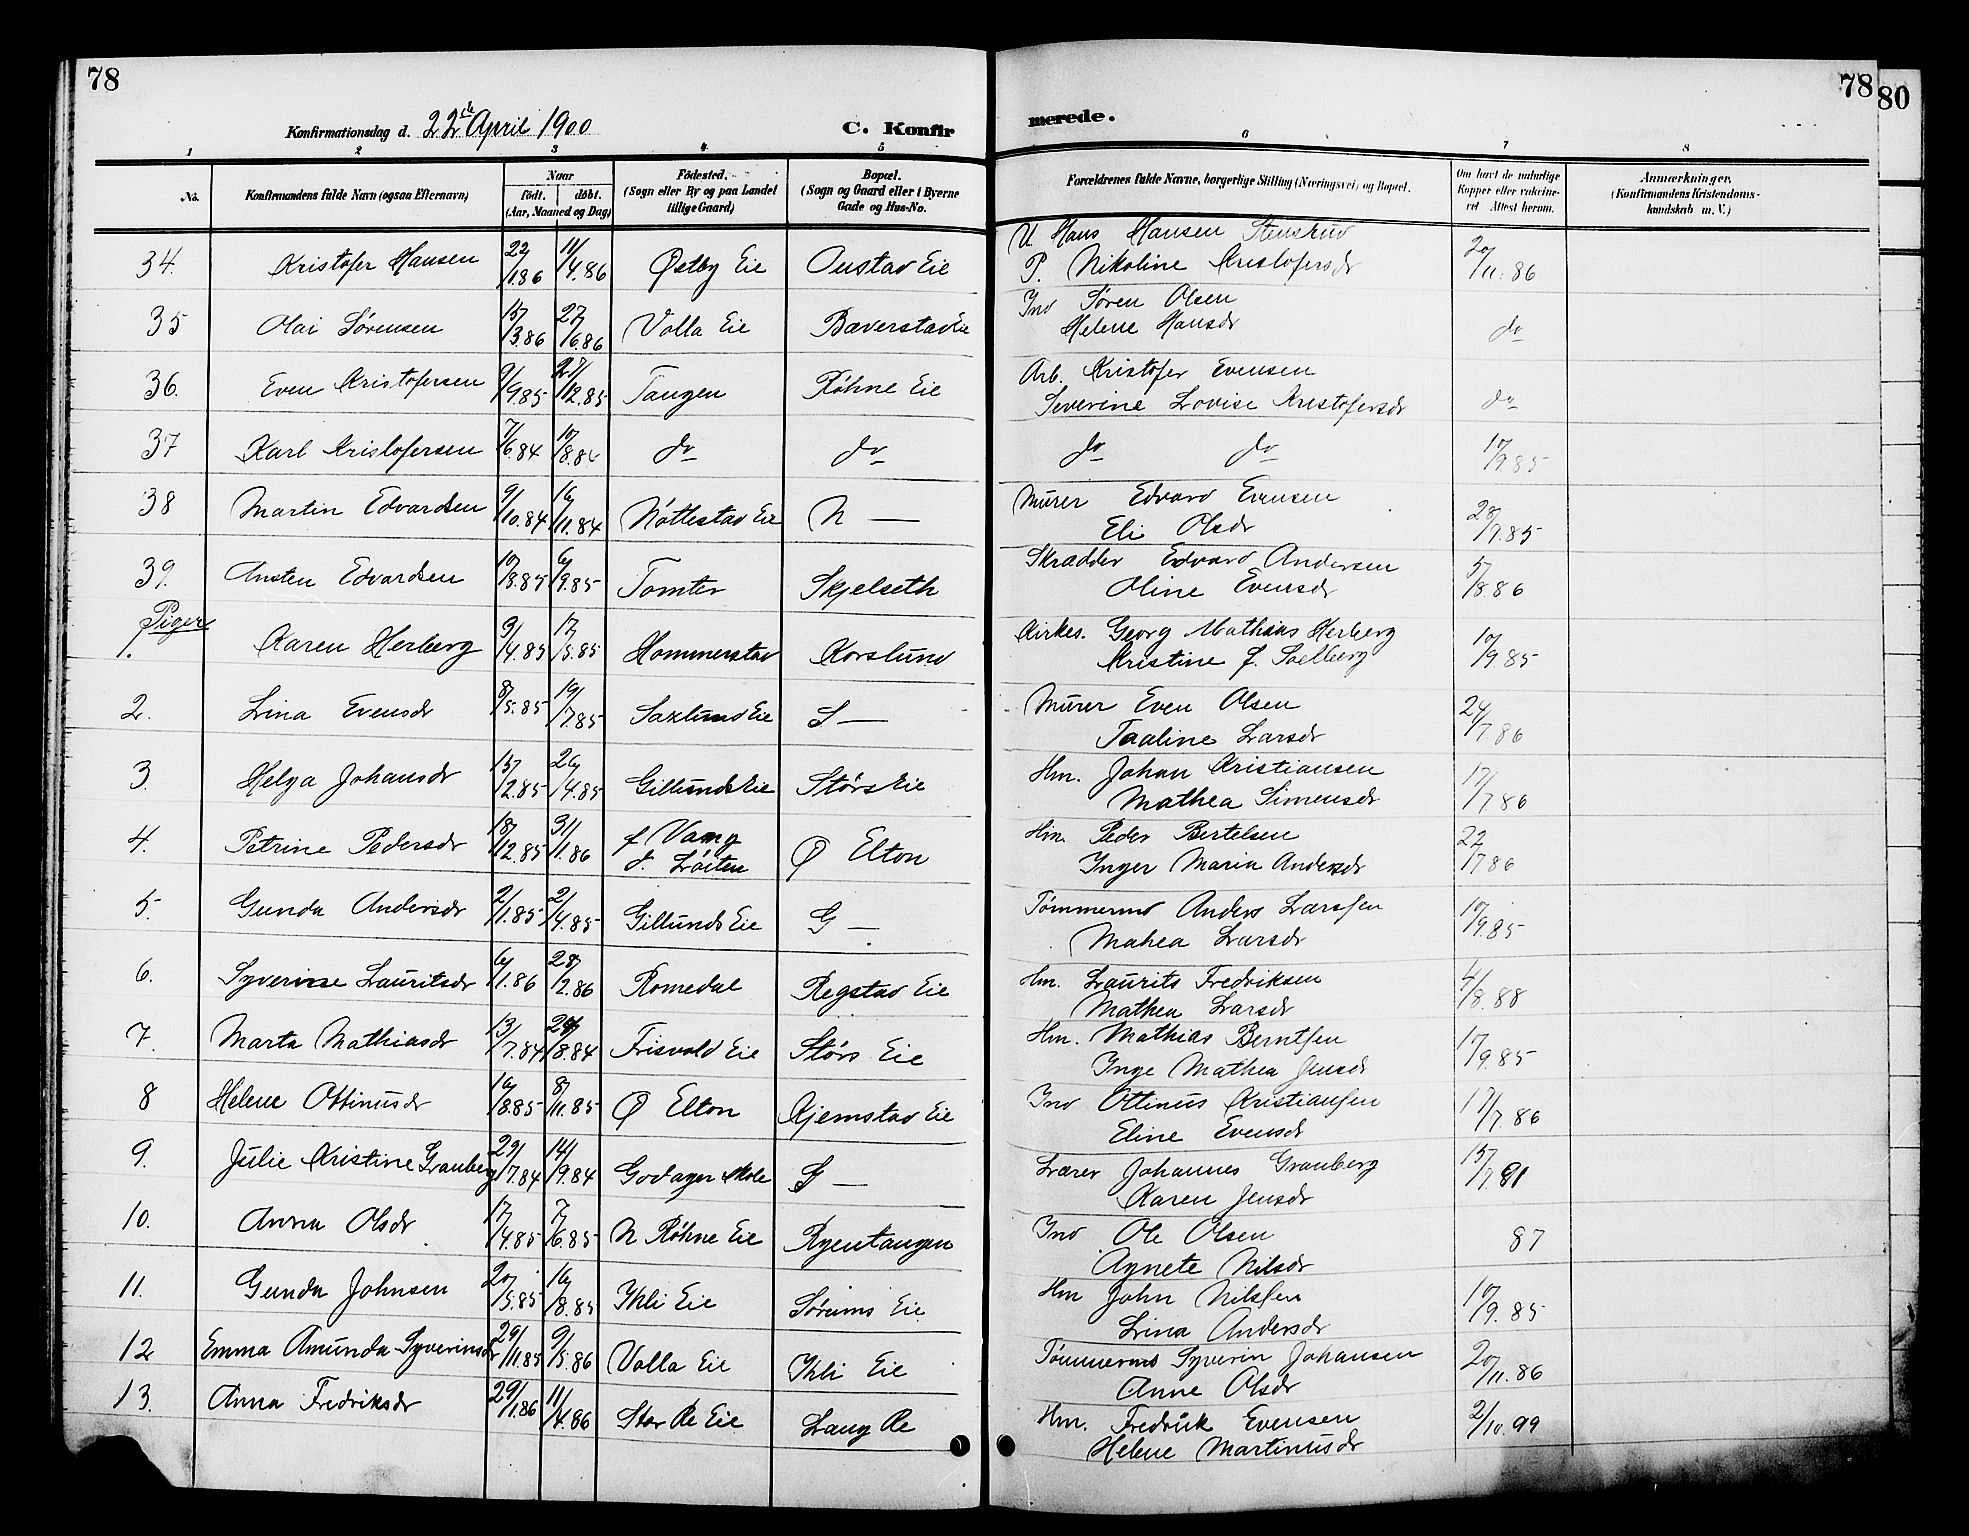 78
78
80
Konfirmationsdag d. 22de April 1900
C. Konfirmerede.
1 2 3 4 5 6 7 8
No. Konfirmandens fulde Navn (ogsaa Efternavn) Naar født. døbt. (Aar, Maaned og Dag) Fødested. (Sogn eller By og paa Landet tillige Gaard) Bopæl. (Sogn og Gaard eller i Byerne Gade og Hus-No. Forældrenes fulde Navne, borgerlige Stilling (Næringsvei) og Bopæl. Om havt de naturlige Kopper eller vaccineret. Attest herom. Anmærkninger. (Konfirmandens Kristendomskundskab m. V.)
34. Kristofer Hansen 22/1 86 11/4 86 Østby Eie Oustad Eie U. Hans Hansen Stensrud 20/11 86
P. Nikoline Kristofersdr
35 Olai Sørensen 15/3 86 27/6 86 Volla Eie Bæverstad Eie Ind Søren Olsen
Helene Hansdr do
36. Even Kristofersen 9/9 85 27/12 85 Tangen Røhne Eie Arb. Kristofer Evensen
Severine Lovise Kristofersdr do
37 Karl Kristofersen 7/6 84 10/8 84 do do do do 10/9 85
38 Martin Edvardsen 9/10 84 16/11 84 Nøttestad Eie N — Murer Edvard Evensen
Eli Olsdr 28/7 85
39. Ansten Edvardsen 10/8 85 6/9 85 Tomter Skjelseth Skrædder Edvard Andersen
Oline Evensdr 5/8 86
Piger
1. Karen Herberg 9/4 85 17/5 85 Hommerstad Korslund Kirkes. Georg Mathias Herberg
Kristine f. Solberg 10/9 85
2. Lina Evensdr 8/5 85 19/7 85 Saxlund Eie S — Murer Even Olsen
Taaline Larsdr 24/7 86
3. Helga Johansdr 15/2 85 26/4 85 Gillunds Eie Størs Eie Hm. Johan Kristiansen
Mathea Simensdr 17/7 86
4. Petrine Pedersdr 18/12 85 31/1 86 f Vang
d. Løiten Ø Elton Hm. Peder Bertelsen
Inger Maria Andersdr 22/7 86
5. Gunda Andersdr 2/1 85 2/4 85 Gillunds Eie G — Tømmermd Anders Larssen
Mahea Larsdr 10/9 85
6. Syverine Lauritsdr 6/1 86 28/2 86 Romedal Regstad Eie Hm. Laurits Fredriksen
Mathea Larsdr 4/8 88
7. Marta Mathiasdr 13/7 84 24/8 84 Frisvold Eie Størs Eie Hm. Mathias Berntsen
Inge Mathea Jensdr 17/9 85
8 Helene Ottinusdr 16/8 85 8/11 85 Ø Elton Kjemstad Eie Ind Ottinus Kristiansen
Eline Evensdr 17/7 86
9. Julie Kristine Granberg 29/7 84 14/9 84 Godager Skole G — Lærer Johannes Granberg
Karen Jensdr 15/7 91
10. Anna Olsdr 17/4 85 7/6 85 N Røhne Eie Ryentangen Ind Ole Olsen
Agnete Nilsdr 87
11. Gunda Johnsen 20/5 85 16/8 85 Ihli Eie Sørums Eie Hm John Nilssen
Lina Andersdr 10/9 85
12 Emma Amunda Syverinsdr 29/11 85 9/5 86 Volla Eie Ihli Eie Tømmermd Syverin Johansen
Anne Olsdr 20/11 86
13. Anna Fredriksdr 29/1 86 11/4 86 Stor Re Eie Lang Re Hm. Fredrik Evensen
Helene Martinusdr 2/10 99